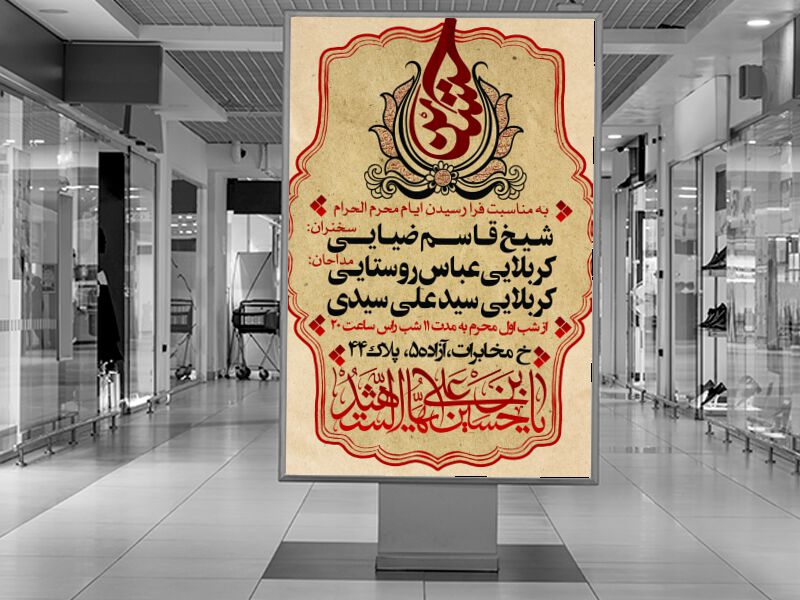 حسین
به مناسبت فرا رسیدن ایام محرم الحرام
سخنران:
شیخ قاسم ضیایی
مداحان:
کربلایی عباس روستایی
کربلایی سید علی سیدی
از شب اول محرم به مدت ۱۱ شب راس ساعت ۲۰
خ مخابرات، آزاده۵، پلاک۴۴
یا حسین بن علی ایها الشهید